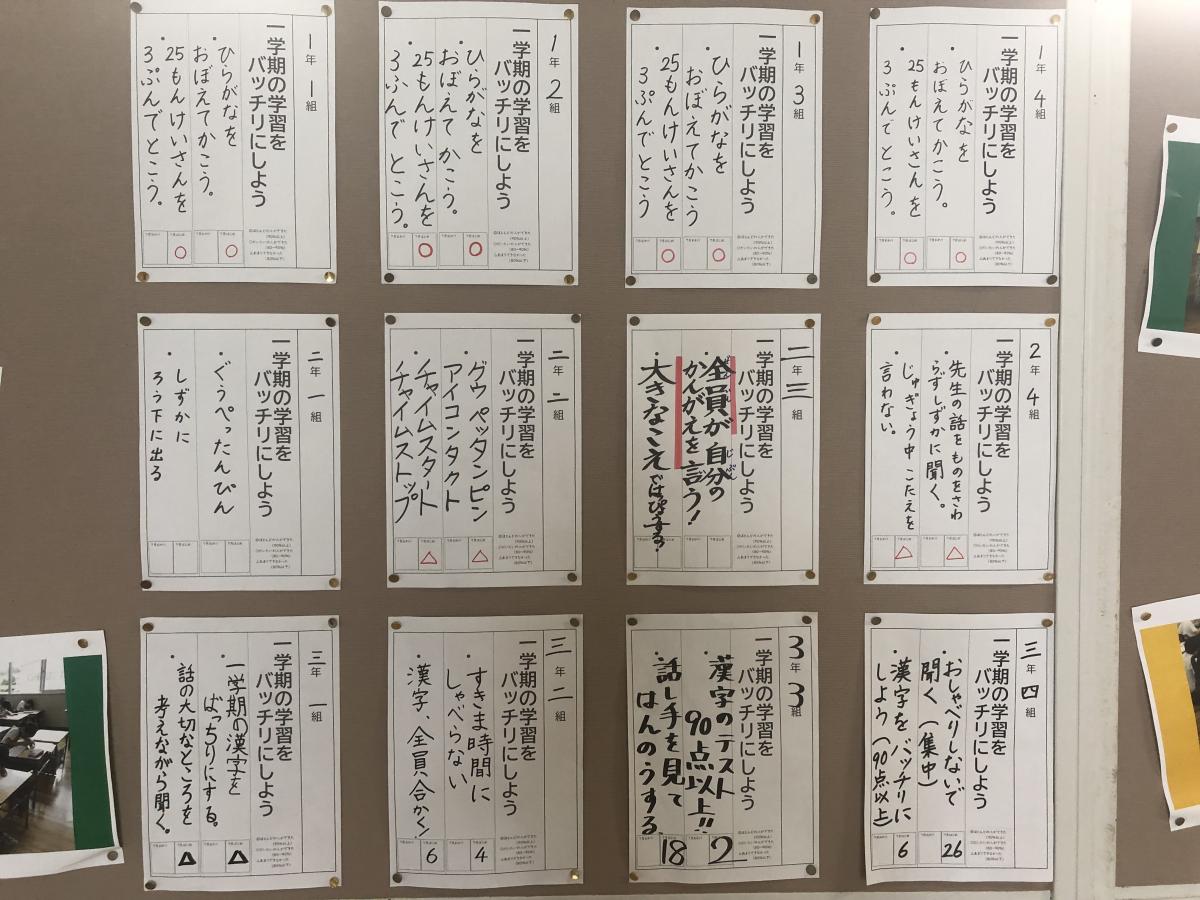 1年 1組
一学期の学習を
バッチリにしよう
・ひらがなを
おぼえてかこう。
・25もんけいさんを
3ぷんでとこう。
○
○
1年 2組
一学期の学習を
バッチリにしよう
・ひらがなを
おぼえてかこう。
・25もんけいさんを
3ぷんでとこう。
○
○
1年 3組
一学期の学習を
バッチリにしよう
・ひらがなを
おぼえてかこう
・25もんけいさんを
3ぷんでとこう
○
○
1年 4組
一学期の学習を
バッチリにしよう
・ひらがなを
おぼえてかこう。
・25もんけいさんを
3ぷんでとこう。
○
○
二年 一組
一学期の学習を
バッチリにしよう
・ぐうぺったんぴん
・しずかに
ろう下に出る
二年 二組
一学期の学習を
バッチリにしよう
・グウペッタンピン
アイコンタクト
・チャイムスタート
チャイムストップ
△
△
二年 三組
一学期の学習を
バッチリにしよう
・全員が自分の
かんがえを言う!
・大きなこえではぴょうする!
2年 4組
一学期の学習を
バッチリにしよう
・先生の話をものをさわ
らずしずかに聞く。
・じゅぎょう中こたえを
言わない。
△
△
三年 一組
一学期の学習を
バッチリにしよう
・一学期の漢字を
ばっちりにする。
・話の大切なところを
考えながら聞く。
△
△
三年 二組
一学期の学習を
バッチリにしよう
・すきま時間に
しゃべらない
・漢字、全員合かく!
4
6
3年 3組
一学期の学習を
バッチリにしよう
・漢字のテスト
90点以上!!
・話し手を見て
はんのうする
2
18
三年 四組
一学期の学習を
バッチリにしよう
・おしゃべりしないで
聞く(集中)
・漢字をバッチリに
しよう(90点以上)
26
6